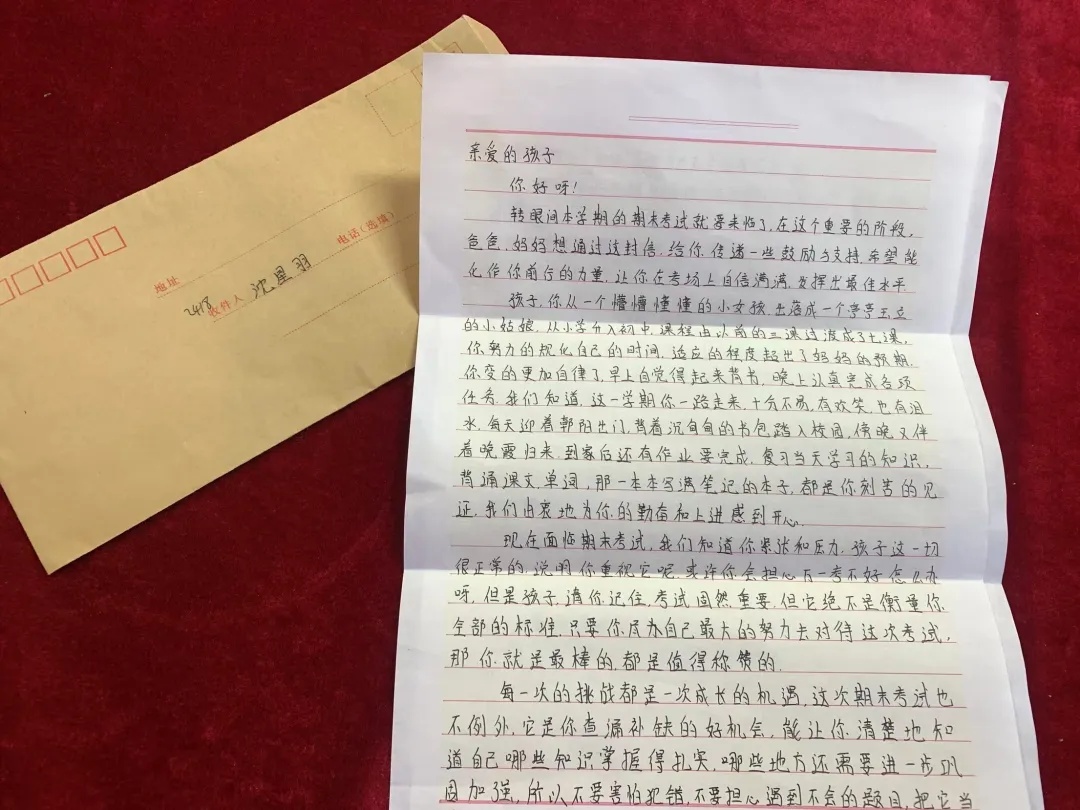 地址
电话(选填)
2418
收件人 沈星羽
亲爱的孩子
你好呀!
转眼间本学期的期末考试就要来临了,在这个重要的阶段,
爸爸、妈妈想通过这封信,给你传递一些鼓励与支持,希望能
化作你前行的力量,让你在考场上自信满满,发挥出最佳水平
孩子,你从一个懵懵懂懂的小女孩,出落成一个亭亭玉立
的小姑娘,从小学升入初中,课程由以前的三课过渡成了七课,
你努力的规化自己的时间,适应的程度超出了妈妈的预期,
你变的更加自律了,早上自觉得起来背书,晚上认真完成各项
任务,我们知道,这一学期你一路走来,十分不易,有欢笑,也有泪
水,每天迎着朝阳出门,背着沉甸甸的书包踏入校园,傍晚又伴
着晚霞归来,到家后还有作业要完成,复习当天学习的知识,
背诵课文、单词,那一本本写满笔记的本子,都是你刻苦的见
证,我们由衷地为你的勤奋和上进感到开心。
现在面临期末考试,我们知道你紧张和压力,孩子这一切
很正常的,说明你重视它呢,或许你会担心万一考不好怎么办
呀,但是孩子,请你记住,考试固然重要,但它绝不是衡量你
全部的标准,只要你尽力自己最大的努力去对待这次考试,
那你就是最棒的,都是值得称赞的.
每一次的挑战都是一次成长的机遇,这次期末考试也
不例外,它是你查漏补缺的好机会,能让你清楚地知
道自己哪些知识掌握得扎实,哪些地方还需要进一步巩
固加强,所以不要害怕犯错,不要担心遇到不会的题目,把它当